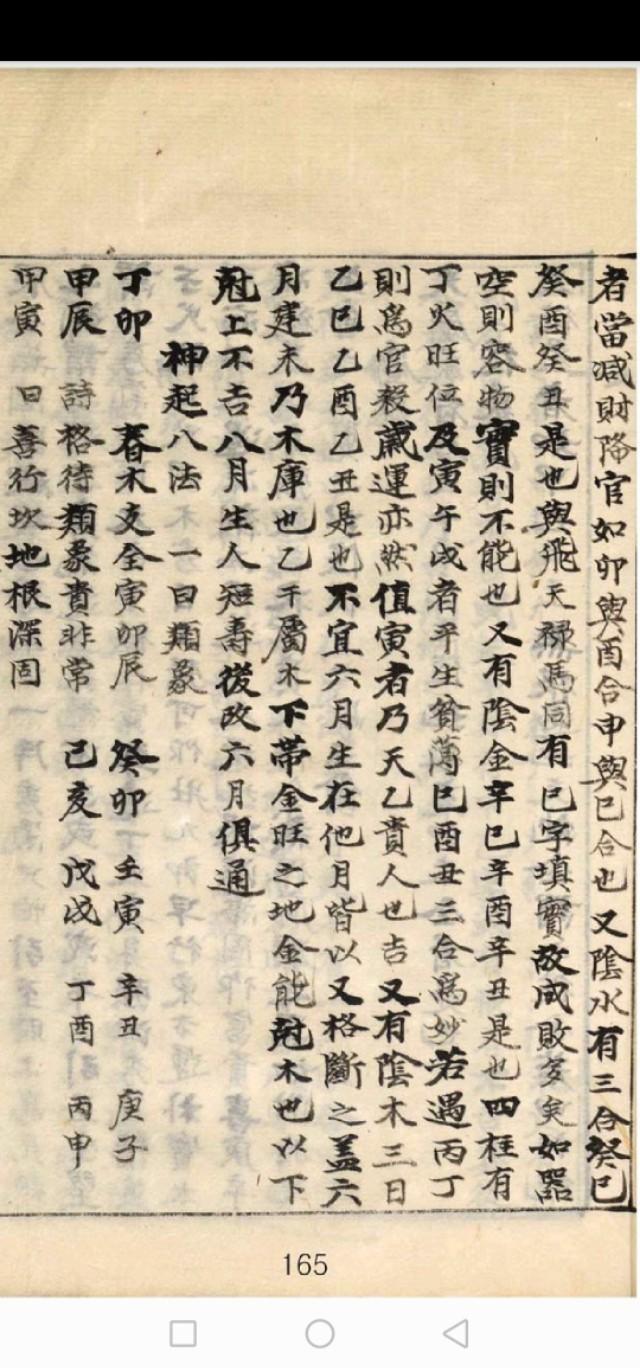 者當減財降官如卯與酉合申與巳合也又陰水有三合癸巳
癸酉癸丑是也與飛天祿馬同有巳字填實故成敗多矣如器
空則容物實則不能也又有陰金辛巳辛酉辛丑是也四柱有
丁火旺位及寅午戌者平生貧薄巳酉丑三合為妙若遇丙丁
則為官殺歲運亦然值寅者乃天乙貴人也吉又有陰木三日
乙巳乙酉乙丑是也不宜六月生在他月皆以又格斷之蓋六
月建未乃木庫也乙干屬木下帶金旺之地金能尅木也以下
尅上不吉八月生人短壽後改六月俱通
神起八法 一曰類象
丁卯 春木支全寅卯辰 癸卯 壬寅 辛丑 庚子
甲辰 詩格待類象貴非常 己亥 戊戌 丁酉 丙申
甲寅 曰善行坎地根深固
165